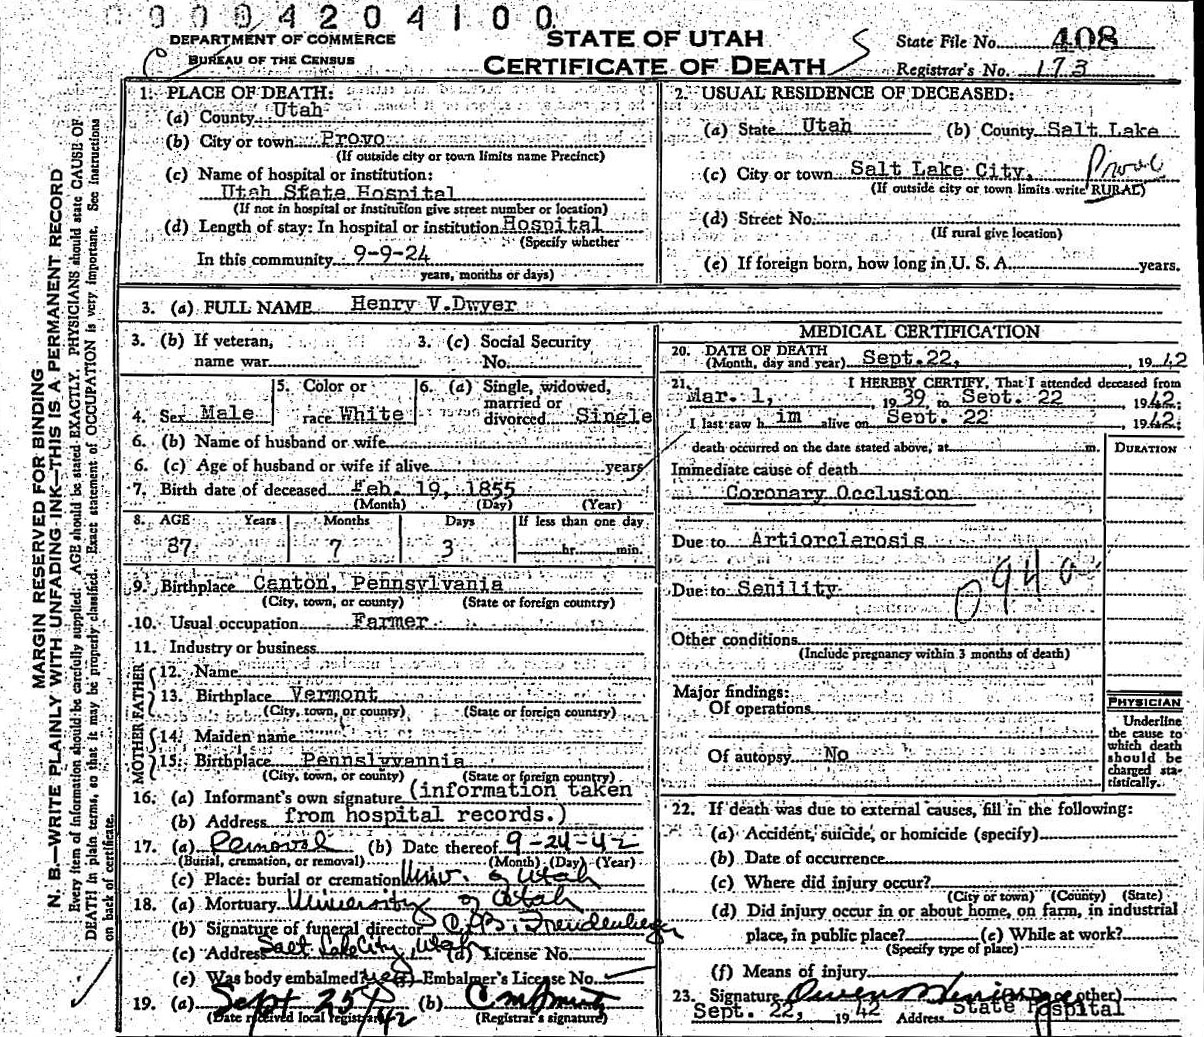 0 0 0 4 2 0 4 1 0 0
DEPARTMENT OF COMMERCE
BUREAU OF THE CENSUS
STATE OF UTAH
CERTIFICATE OF DEATH
State File No. 408
Registrar's No. 173
MARGIN RESERVED FOR BINDING
N. B.—WRITE PLAINLY WITH UNFADING INK—THIS IS A PERMANENT RECORD
Every item of information should be carefully supplied. AGE should be stated EXACTLY. PHYSICIANS should state CAUSE OF
DEATH in plain terms, so that it may be properly classified. Exact statement of OCCUPATION is very important. See instructions
on back of certificate.
1. PLACE OF DEATH:
(a) County Utah
(b) City or town Provo
(If outside city or town limits name Precinct)
(c) Name of hospital or institution:
Utah State Hospital
(If not in hospital or institution give street number or location)
(d) Length of stay: In hospital or institution Hospital
(Specify whether
In this community 9-9-24
years, months or days)
2. USUAL RESIDENCE OF DECEASED:
(a) State Utah (b) County Salt Lake
(c) City or town Salt Lake City, Provo
(If outside city or town limits write RURAL)
(d) Street No.
(If rural give location)
(e) If foreign born, how long in U. S. A. years.
3. (a) FULL NAME Henry V.Dwyer
3. (b) If veteran, name war
3. (c) Social Security No.
4. Sex Male
5. Color or race White
6. (a) Single, widowed, married or divorced Single
6. (b) Name of husband or wife
6. (c) Age of husband or wife if alive years
7. Birth date of deceased Feb. 19, 1855
(Month) (Day) (Year)
8. AGE Years Months Days If less than one day
87 7 3 hr. min.
9. Birthplace Canton, Pennsylvania
(City, town, or county) (State or foreign country)
10. Usual occupation Farmer
11. Industry or business
FATHER
12. Name
13. Birthplace Vermont
(City, town, or county) (State or foreign country)
MOTHER
14. Maiden name
15. Birthplace Pennslyvannia
(City, town, or county) (State or foreign country)
16. (a) Informant's own signature (information taken
(b) Address from hospital records.)
17. (a) Removal (b) Date thereof 9-24-42
(Burial, cremation, or removal) (Month) (Day) (Year)
(c) Place: burial or cremation Univ. of Utah
18. (a) Mortuary University of Utah
(b) Signature of funeral director
(c) Address Salt Lake City, Utah (d) License No.
(e) Was body embalmed? yes (f) Embalmer's License No.
19. (a) Sept 25/42 (b)
(Date received local registrar) (Registrar's signature)
MEDICAL CERTIFICATION
20. DATE OF DEATH
(Month, day and year) Sept.22, , 1942
21. I HEREBY CERTIFY, That I attended deceased from
Mar. 1, 1939 to Sept. 22 1942.
I last saw h im alive on Sept. 22 , 1942;
death occurred on the date stated above, at m.
DURATION
Immediate cause of death
Coronary Occlusion
Due to Artiorclerosis
Due to Senility
094a
Other conditions
(Include pregnancy within 3 months of death)
Major findings:
Of operations
Of autopsy No
PHYSICIAN
Underline
the cause to
which death
should be
charged sta-
tistically.
22. If death was due to external causes, fill in the following:
(a) Accident, suicide, or homicide (specify)
(b) Date of occurrence
(c) Where did injury occur?
(City or town) (County) (State)
(d) Did injury occur in or about home, on farm, in industrial
place, in public place? (e) While at work?
(Specify type of place)
(f) Means of injury
23. Signature Owen
Sept. 22, 1942 Address State Hospital